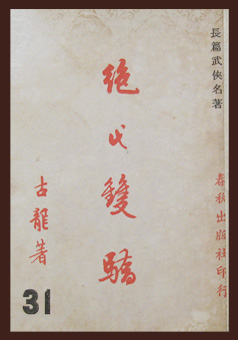 長篇武俠名著
春秋出版社印行
絕代雙驕
古龍著
31